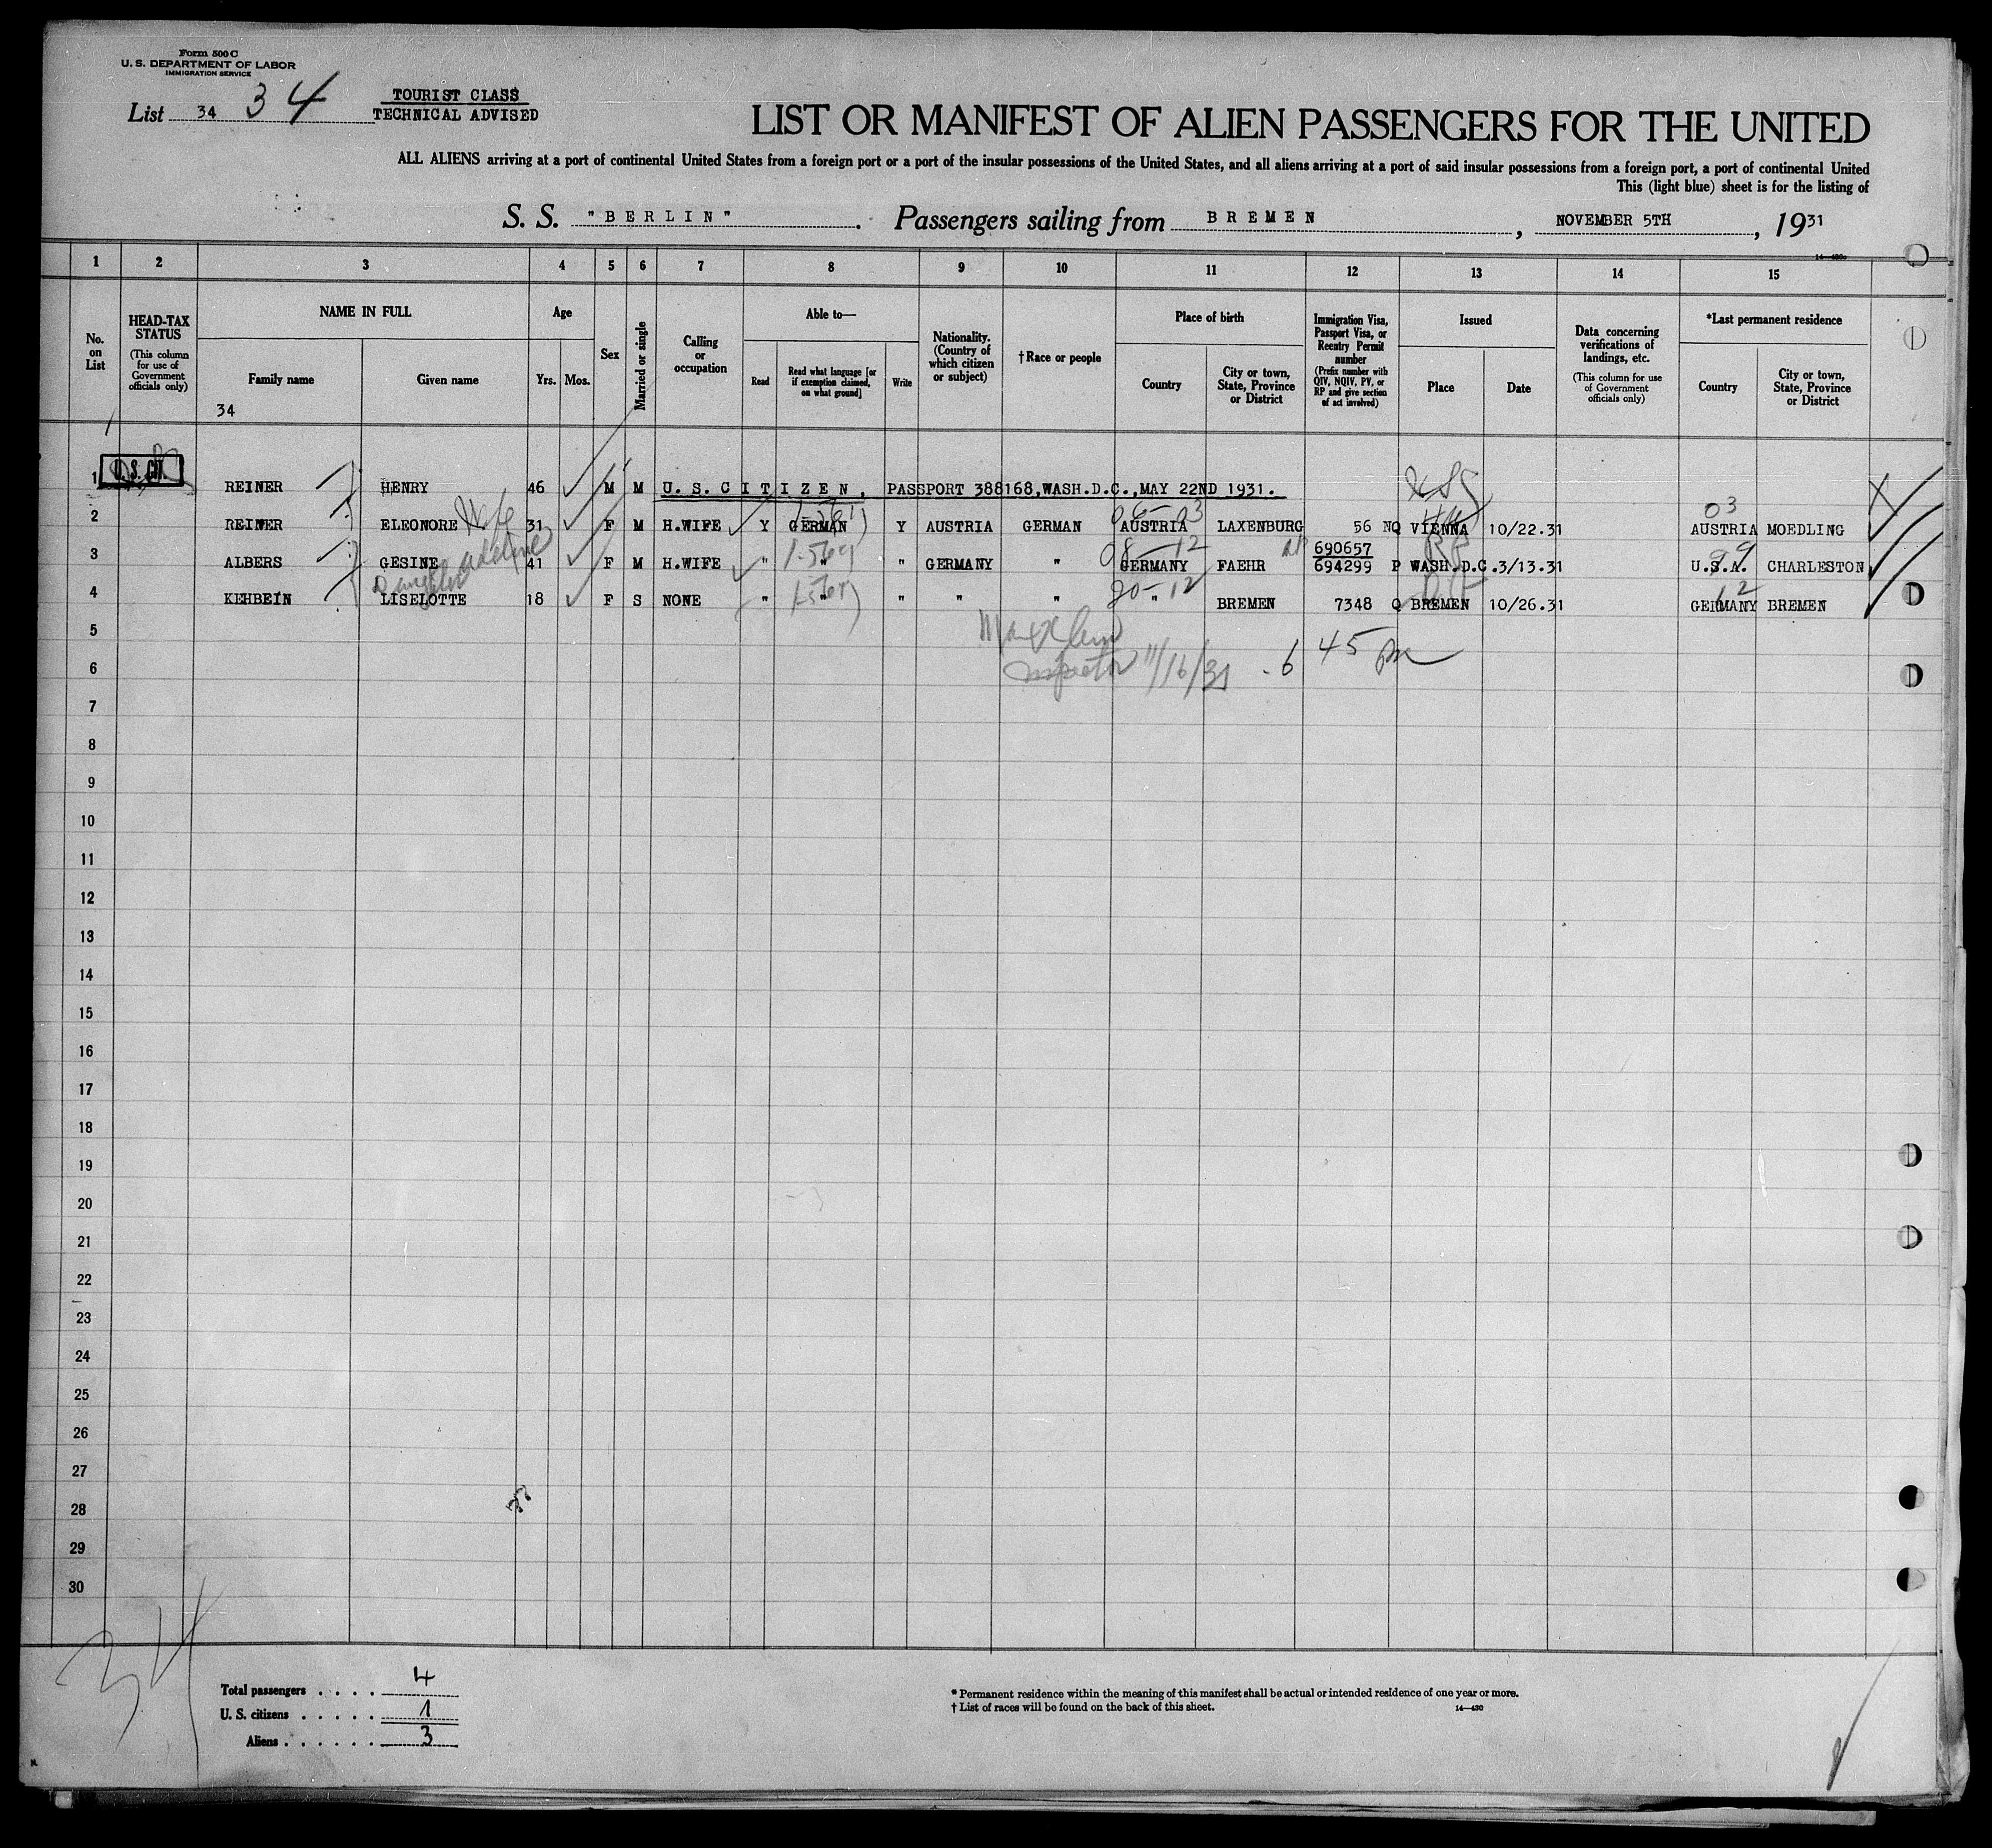 Form 500 C
U. S. DEPARTMENT OF LABOR
IMMIGRATION SERVICE
List 34 34
TOURIST CLASS
TECHNICAL ADVISED
LIST OR MANIFEST OF ALIEN PASSENGERS FOR THE UNITED
ALL ALIENS arriving at a port of continental United States from a foreign port or a port of the insular possessions of the United States, and all aliens arriving at a port of said insular possessions from a foreign port, a port of continental United
This (light blue) sheet is for the listing of
S. S. "BERLIN". Passengers sailing from BREMEN, NOVEMBER 5TH, 1931
14—430
1 2 3 4 5 6 7 8 9 10 11 12 13 14 15
No. on List
HEAD-TAX STATUS
(This column for use of Government officials only)
NAME IN FULL
Family name
Given name
34
Age
Yrs. Mos.
Sex
Married or single
Calling or occupation
Able to—
Read
Read what language [or if exemption claimed, on what ground]
Write
Nationality. (Country of which citizen or subject)
†Race or people
Place of birth
Country
City or town, State, Province or District
Immigration Visa, Passport Visa, or Reentry Permit number
(Prefix number with QIV, NQIV, PV, or RP and give section of act involved)
Issued
Place
Date
Data concerning verifications of landings, etc.
(This column for use of Government officials only)
*Last permanent residence
Country
City or town, State, Province or District
1 U.S. CIT. REINER HENRY 46 M M U. S. CITIZEN, PASSPORT 388168,WASH.D.C.,MAY 22ND 1931.
03
2 REINER ELEONORE Wife 31 F M H.WIFE Y GERMAN Y AUSTRIA GERMAN AUSTRIA LAXENBURG 56 NQ VIENNA 10/22.31 AUSTRIA MOEDLING
08-12 690657 99
3 ALBERS GESINE Adeline 41 F M H.WIFE " " " GERMANY " GERMANY FAEHR 694299 P WASH.D.C.3/13.31 U.S.A. CHARLESTON
20-12 12
4 KEHBEIN LISELOTTE 18 F S NONE " " " " " " BREMEN 7348 Q BREMEN 10/26.31 GERMANY BREMEN
5
6 Inspector 11/16/31 6 45 pm
7
8
9
10
11
12
13
14
15
16
17
18
19
20
21
22
23
24
25
26
27
28
29
30
34
Total passengers . . . . 4
U. S. citizens . . . . . 1
Aliens . . . . . . 3
* Permanent residence within the meaning of this manifest shall be actual or intended residence of one year or more.
† List of races will be found on the back of this sheet.
14—430